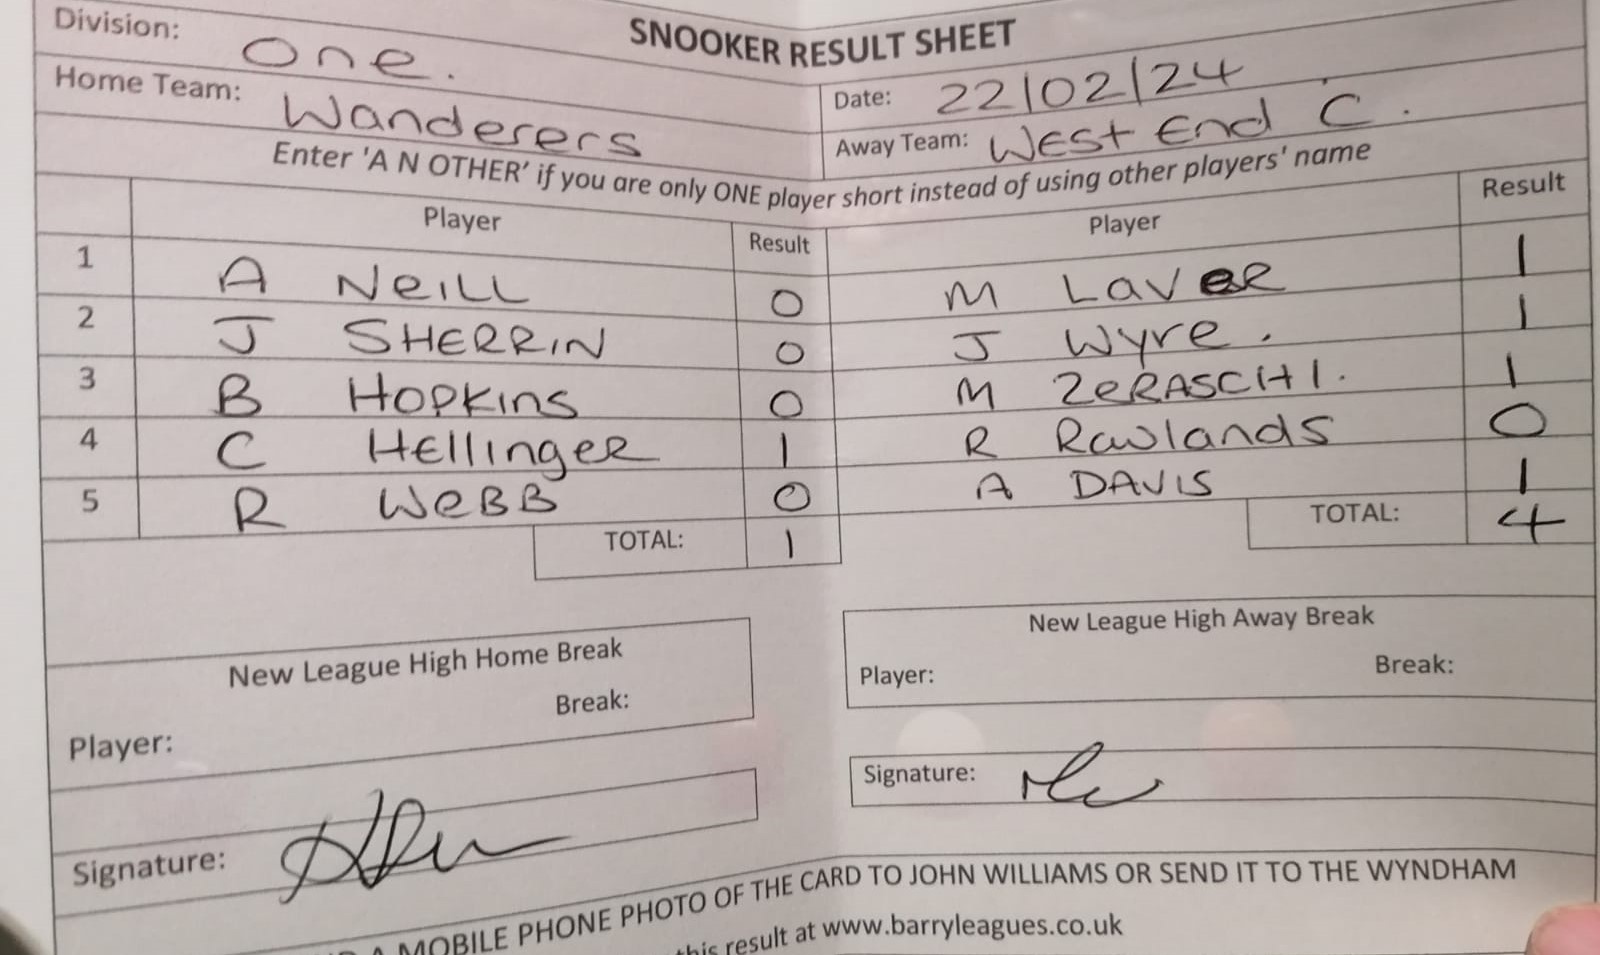 SNOOKER RESULT SHEET
Division: One.
Date: 22/02/24
Home Team: Wanderers
Away Team: West End C.
Enter 'A N OTHER' if you are only ONE player short instead of using other players' name
Player Result Player Result
1 A NeILL 0 M LaveR 1
2 J SHERRIN 0 J Wyre. 1
3 B HOPKins 0 M ZeRASCHI. 1
4 C HEllingeR 1 R Rawlands 0
5 R WeBB 0 A DAVIS 1
TOTAL: 1 TOTAL: 4
New League High Home Break
Player: Break:
New League High Away Break
Player: Break:
Signature:
Signature:
A MOBILE PHONE PHOTO OF THE CARD TO JOHN WILLIAMS OR SEND IT TO THE WYNDHAM
this result at www.barryleagues.co.uk